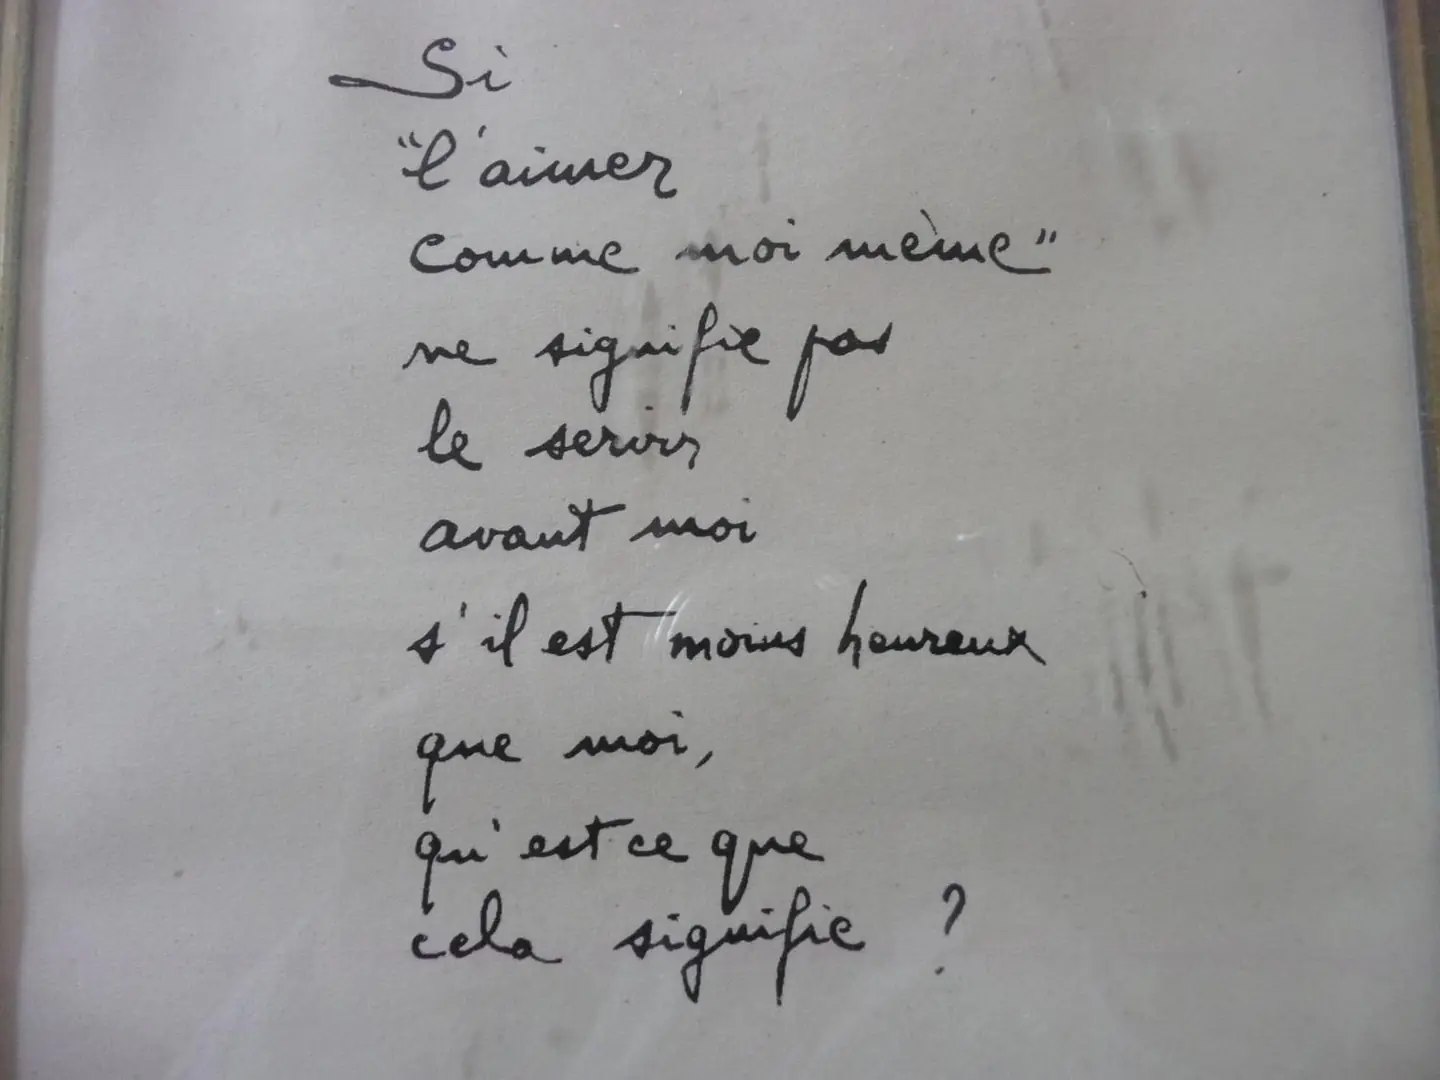 Si
"l'aimer
comme moi mème"
ne signifie pas
le servir
avant moi
s'il est moins heureux
que moi,
qu'est ce que
cela signifie ?